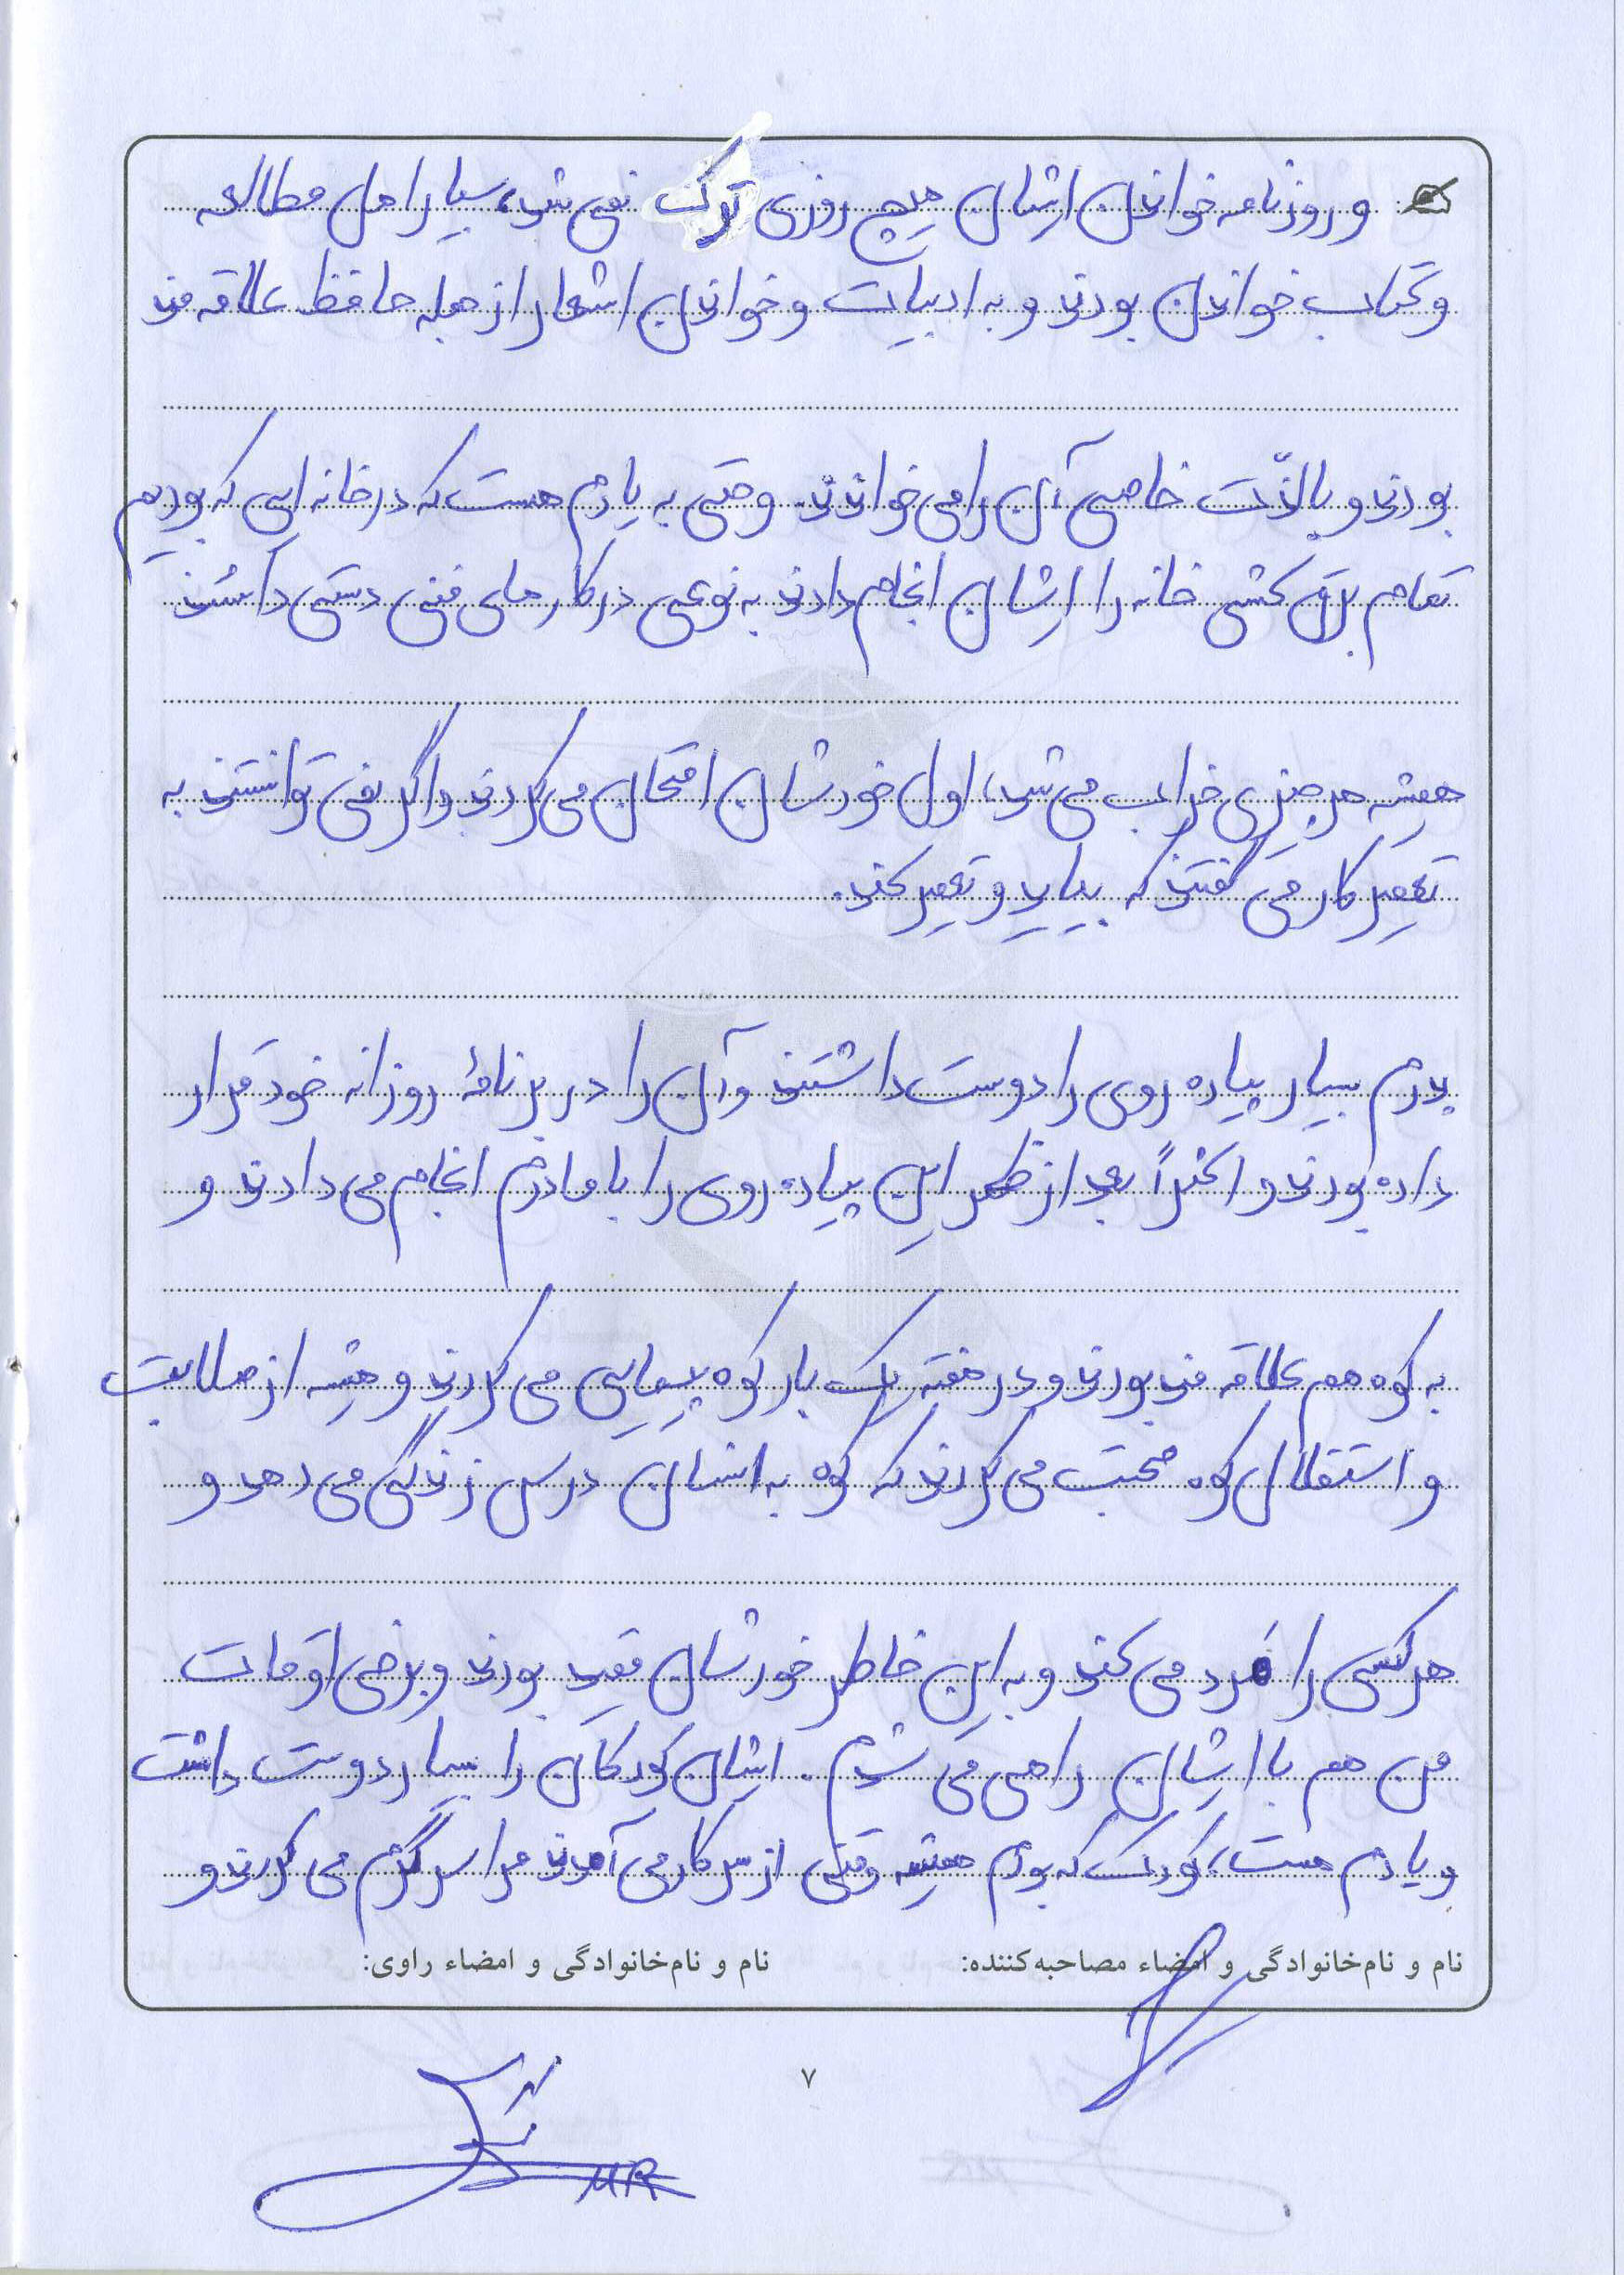 و روزنامه خواندن ایشان هیچ روزی ترک نمی‌شد، بسیار اهل مطالعه
و کتاب خواندن بودند و به ادبیات و خواندن اشعار از جمله حافظ علاقه مند
بودند و با لذّت خاصی آن را می‌خواندند. و حتی به یادم هست که در خانه ایی که بودیم
تمام برق کشی خانه را ایشان انجام دادند به نوعی در کارهای فنی دستی داشتند
همیشه هر چیزی خراب می‌شد، اول خودشان امتحان می‌کردند و اگر نمی توانستند به
تعمیرکار می گفتند که بیاید و تعمیر کند.
پدرم بسیار پیاده روی را دوست داشتند و آن را در برنامهٔ روزانه خود قرار
داده بودند و اکثراً بعد از ظهر این پیاده روی را با مادرم انجام می‌دادند و
به کوه هم علاقه مند بودند و در هفته یک بار کوه پیمایی می کردند و همیشه از صلابت
و استقلال کوه صحبت می کردند که کوه به انسان درس زندگی می‌دهد و
هر کسی را مَرد می کند و به این خاطر خودشان مقید بودند و برخی اوقات
من هم با ایشان راهی می شدم. ایشان کودکان را بسیار دوست داشت
و یادم هست، کودک که بودم همیشه وقتی از سر کار می آمدند مرا سرگرم می کردند و
نام و نام‌خانوادگی و امضاء مصاحبه‌کننده: نام و نام‌خانوادگی و امضاء راوی:
۷
MR